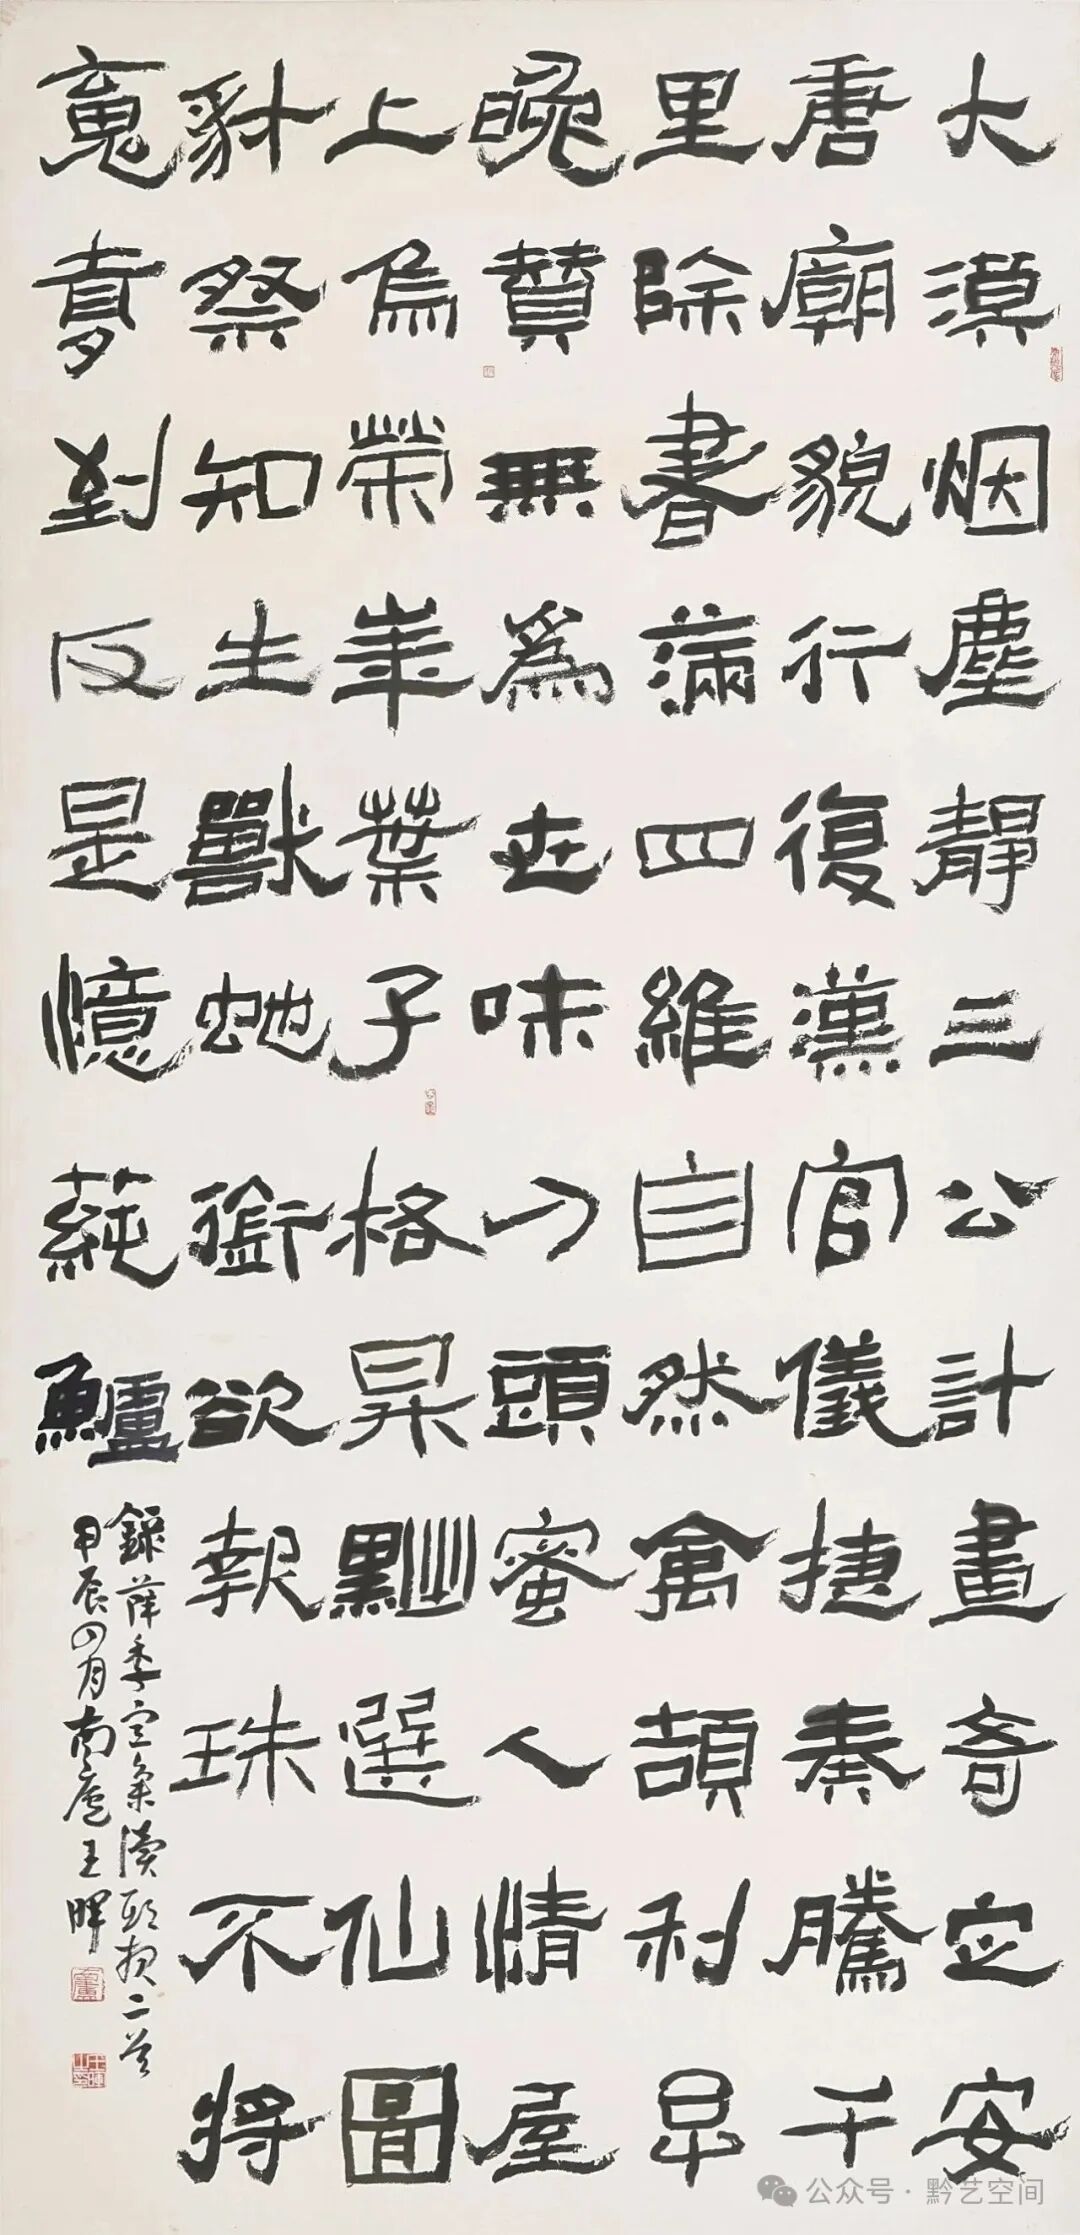 大漠烟塵靜三公計畫奇定安
唐廟貌行復漢官儀捷奏騰千
里除書滿四維自然禽頡利早
晚贊無爲世味刀頭蜜人情屋
上烏榮華葉子格昇黜選仙圖
豺祭知生獸蛇銜欲報珠不將
魂夢到反是憶蒓鱸
錄薛季宣二首
甲辰四月南廬王暉
公众号·黔艺空间